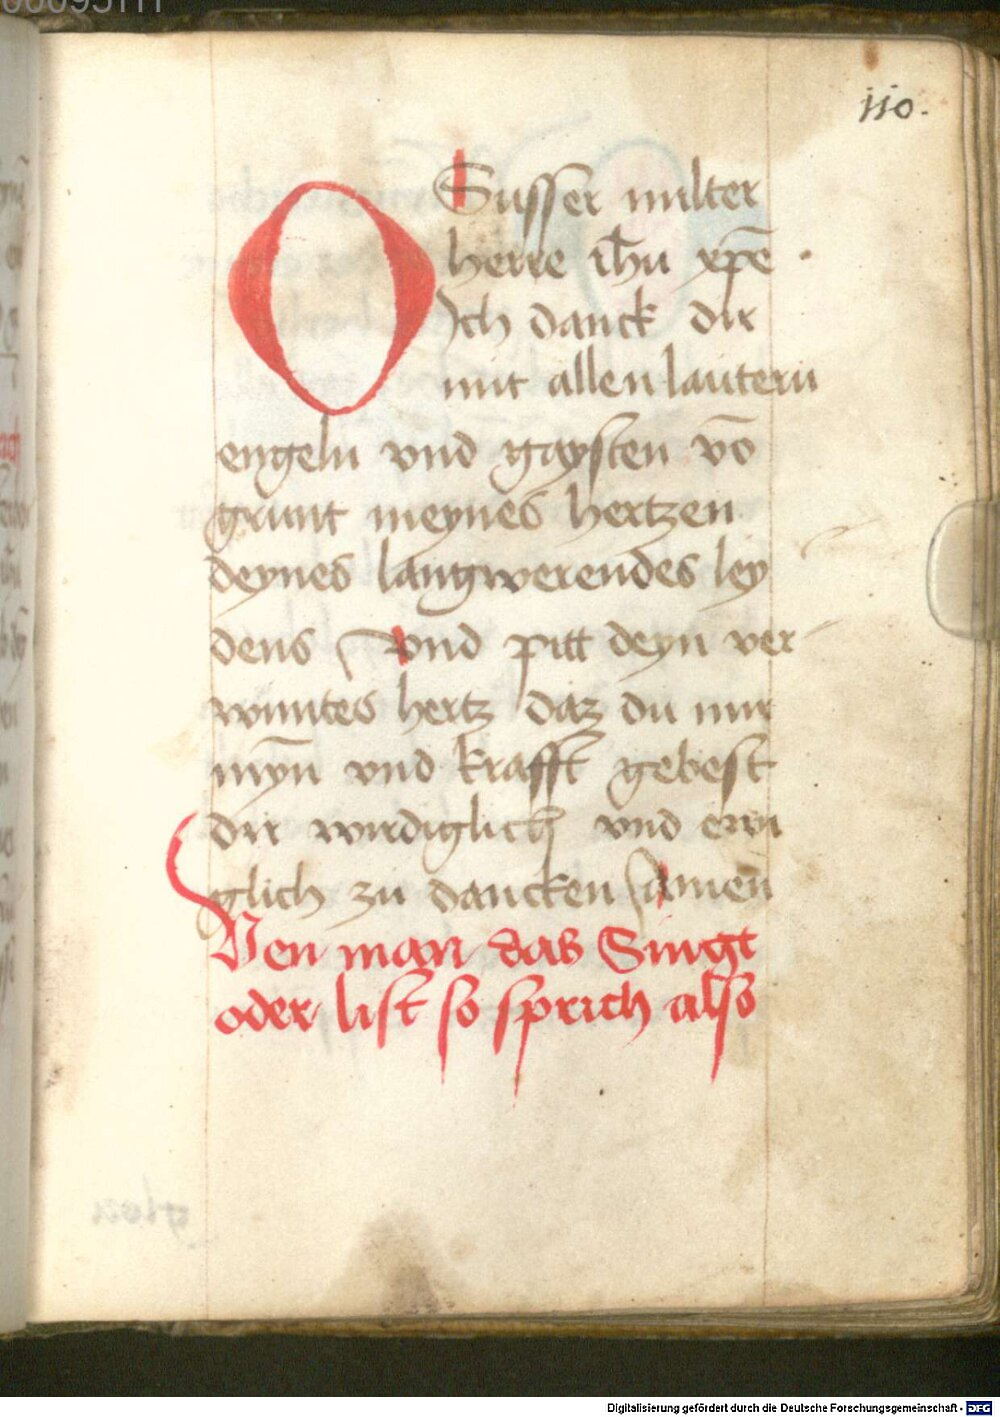 110.
O Susser milter
herre ih̄u xp̄e ·
Ich danck dir
mit allen lautern
engeln vnd gaysten vō
grunt meynes hertzen
deynes langwerendes ley
dens Vnd pitt deyn ver
wuntes hertz daz du mir
myn̄ vnd krafft gebest
dir wirdiglich vnd ewi
glich zu dancken Amen
Wen man das Singt
oder list so sprich also
Digitalisierung gefördert durch die Deutsche Forschungsgemeinschaft - DFG